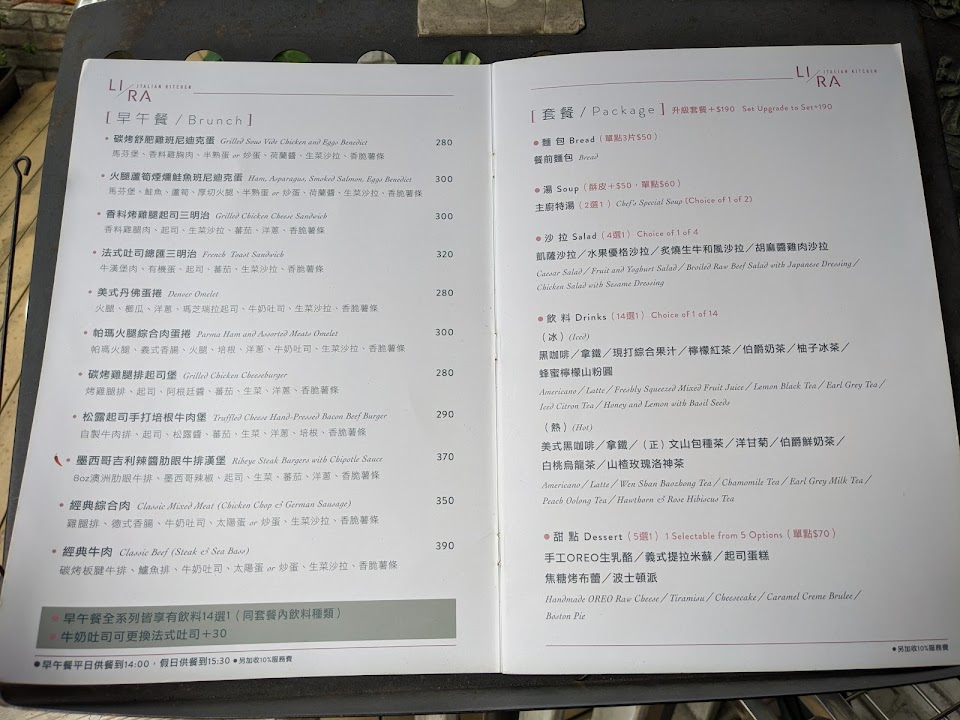 LIRA ITALIAN KITCHEN
[ 早午餐 / Brunch ]
• 碳烤舒肥雞班尼迪克蛋 Grilled Sous Vide Chicken and Eggs Benedict 280
馬芬堡、香料雞胸肉、半熟蛋 or 炒蛋、荷蘭醬、生菜沙拉、香脆薯條
• 火腿蘆筍煙燻鮭魚班尼迪克蛋 Ham, Asparagus, Smoked Salmon, Eggs Benedict 300
馬芬堡、鮭魚、蘆筍、厚切火腿、半熟蛋 or 炒蛋、荷蘭醬、生菜沙拉、香脆薯條
• 香料烤雞腿起司三明治 Grilled Chicken Cheese Sandwich 300
香料雞腿肉、起司、生菜沙拉、蕃茄、洋蔥、香脆薯條
• 法式吐司總匯三明治 French Toast Sandwich 320
牛漢堡肉、有機蛋、起司、蕃茄、生菜沙拉、香脆薯條
• 美式丹佛蛋捲 Denver Omelet 280
火腿、櫛瓜、洋蔥、瑪芝瑞拉起司、牛奶吐司、生菜沙拉、香脆薯條
• 帕瑪火腿綜合肉蛋捲 Parma Ham and Assorted Meats Omelet 300
帕瑪火腿、義式香腸、火腿、培根、洋蔥、牛奶吐司、生菜沙拉、香脆薯條
• 碳烤雞腿排起司堡 Grilled Chicken Cheeseburger 280
烤雞腿排、起司、阿根廷醬、蕃茄、生菜、洋蔥、香脆薯條
• 松露起司手打培根牛肉堡 Truffled Cheese Hand-Pressed Bacon Beef Burger 290
自製牛肉排、起司、松露醬、蕃茄、生菜、洋蔥、培根、香脆薯條
• 墨西哥吉利辣醬肋眼牛排漢堡 Ribeye Steak Burgers with Chipotle Sauce 370
8oz澳洲肋眼牛排、墨西哥辣椒、起司、生菜、蕃茄、洋蔥、香脆薯條
• 經典綜合肉 Classic Mixed Meat (Chicken Chop & German Sausage) 350
雞腿排、德式香腸、牛奶吐司、太陽蛋 or 炒蛋、生菜沙拉、香脆薯條
• 經典牛肉 Classic Beef (Steak & Sea Bass) 390
碳烤板腱牛排、鱸魚排、牛奶吐司、太陽蛋 or 炒蛋、生菜沙拉、香脆薯條
• 早午餐全系列皆享有飲料14選1（同套餐內飲料種類）
• 牛奶吐司可更換法式吐司＋30
•早午餐平日供餐到14:00，假日供餐到15:30 •另加收10%服務費
LIRA ITALIAN KITCHEN
[ 套餐 / Package ] 升級套餐＋$190 Set Upgrade to Set+190
• 麵 包 Bread (單點3片$50)
餐前麵包 Bread
• 湯 Soup (酥皮＋$50，單點$60)
主廚特湯 (2選1) Chef's Special Soup (Choice of 1 of 2)
• 沙 拉 Salad (4選1) Choice of 1 of 4
凱薩沙拉／水果優格沙拉／炙燒生牛和風沙拉／胡麻醬雞肉沙拉
Caesar Salad / Fruit and Yoghurt Salad / Broiled Raw Beef Salad with Japanese Dressing /
Chicken Salad with Sesame Dressing
• 飲 料 Drinks (14選1) Choice of 1 of 14
(冰) (Iced)
黑咖啡／拿鐵／現打綜合果汁／檸檬紅茶／伯爵奶茶／柚子冰茶／
蜂蜜檸檬山粉圓
Americano / Latte / Freshly Squeezed Mixed Fruit Juice / Lemon Black Tea / Earl Grey Tea /
Iced Citron Tea / Honey and Lemon with Basil Seeds
(熱) (Hot)
美式黑咖啡／拿鐵／（正）文山包種茶／洋甘菊／伯爵鮮奶茶／
白桃烏龍茶／山楂玫瑰洛神茶
Americano / Latte / Wen Shan Baozhong Tea / Chamomile Tea / Earl Grey Milk Tea /
Peach Oolong Tea / Hawthorn & Rose Hibiscus Tea
• 甜 點 Dessert (5選1) 1 Selectable from 5 Options (單點$70)
手工OREO生乳酪／義式提拉米蘇／起司蛋糕
焦糖烤布蕾／波士頓派
Handmade OREO Raw Cheese / Tiramisu / Cheesecake / Caramel Creme Brulee /
Boston Pie
•另加收10%服務費